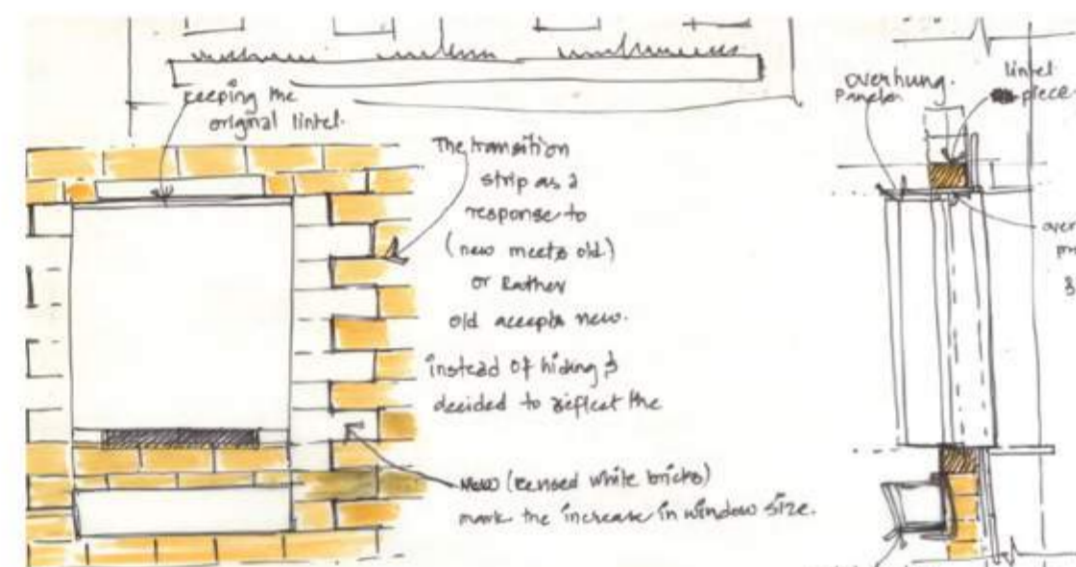 keeping the
original lintel.
The transition
strip as a
response to
(new meets old)
or Rather
old accepts new.
instead of hiding &
decided to reflect the
New (reused white bricks)
mark the increase in window size.
overhung.
Panels.
lintel
piece
over